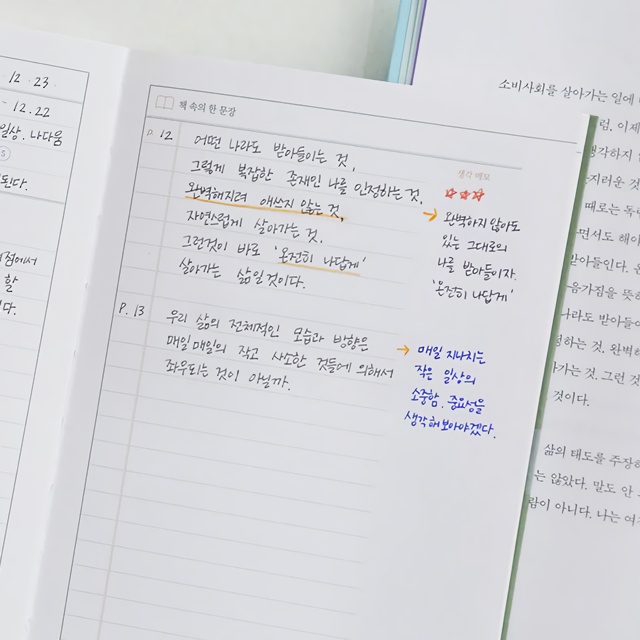 12.23.
- 12.22
일상. 나다움
된다.
점에서
할
다.
책 속의 한 문장
p. 12
어떤 나라도 받아들이는 것,
그렇게 복잡한 존재인 나를 인정하는 것.
완벽해지려 애쓰지 않는 것,
자연스럽게 살아가는 것.
그런것이 바로 '온전히 나답게'
살아가는 삶일것이다.
생각 메모
☆☆☆
→ 완벽하지 않아도
있는 그대로의
나를 받아들이자.
'온전히 나답게'
P. 13
우리 삶의 전체적인 모습과 방향은
매일매일의 작고 사소한 것들에 의해서
좌우되는 것이 아닐까.
→ 매일 지나치는
작은 일상의
소중함. 중요성을
생각해보아야겠다.
소비사회를 살아가는 일에
럼. 이제
생각하지
지러운 것
때로는 독
면서도 해야
받아들인다.
음가짐을 뜻하
나라도 받아들이
정하는 것. 완벽
가는 것. 그런 것
것이다.
삶의 태도를 주장하
는 않았다. 말도 안
람이 아니다. 나는 여